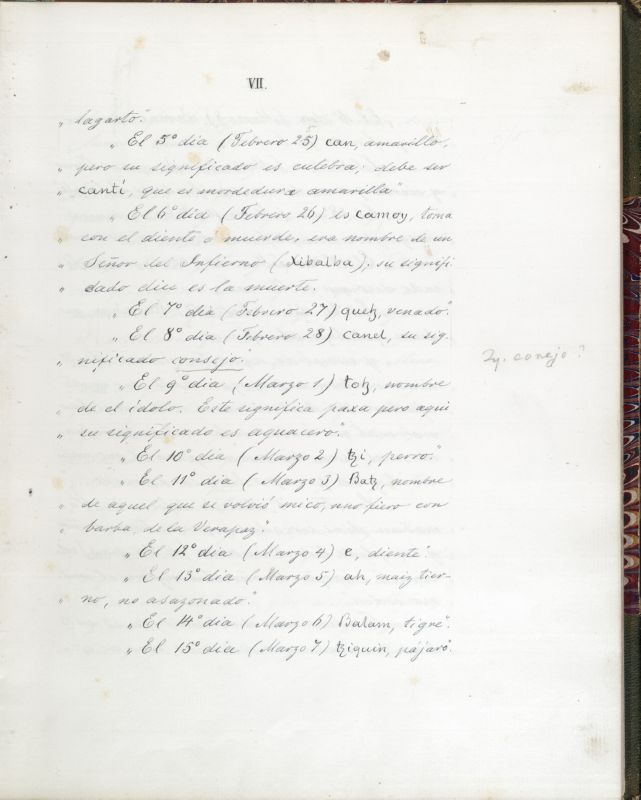 VII.
„ lagarto".
„ El 5º dia (Febrero 25) can, amarillo,
„ pero su significado es culebra; debe ser
„ cantí, que es mordedura amarilla"
„ El 6º dia (Febrero 26) es camoy, toma
„ con el diente ó muerde, era nombre de un
„ Señor del Infierno (Xibalba). su signifi-
„ cado dice es la muerte.
„ El 7º dia (Febrero 27) quetz, venado".
„ El 8º dia (Febrero 28) canel, su sig-
„ nificado consejo.
Zy. conejo?
„ El 9º dia (Marzo 1) totz, nombre
„ de el ídolo. Este significa paxa pero aqui
„ su significado es aguacero".
„ El 10º dia (Marzo 2) tzi, perro".
„ El 11º dia (Marzo 3) Batz, nombre
„ de aquel que se volvió mico, uno fiero con
„ barba de la Verapaz".
„ El 12º dia (Marzo 4) e, diente".
„ El 13º dia (Marzo 5) ah, maiz tier-
„ no, no asazonado".
„ El 14º dia (Marzo 6) Balam, tigre".
„ El 15º dia (Marzo 7) tziquin, pájaro".